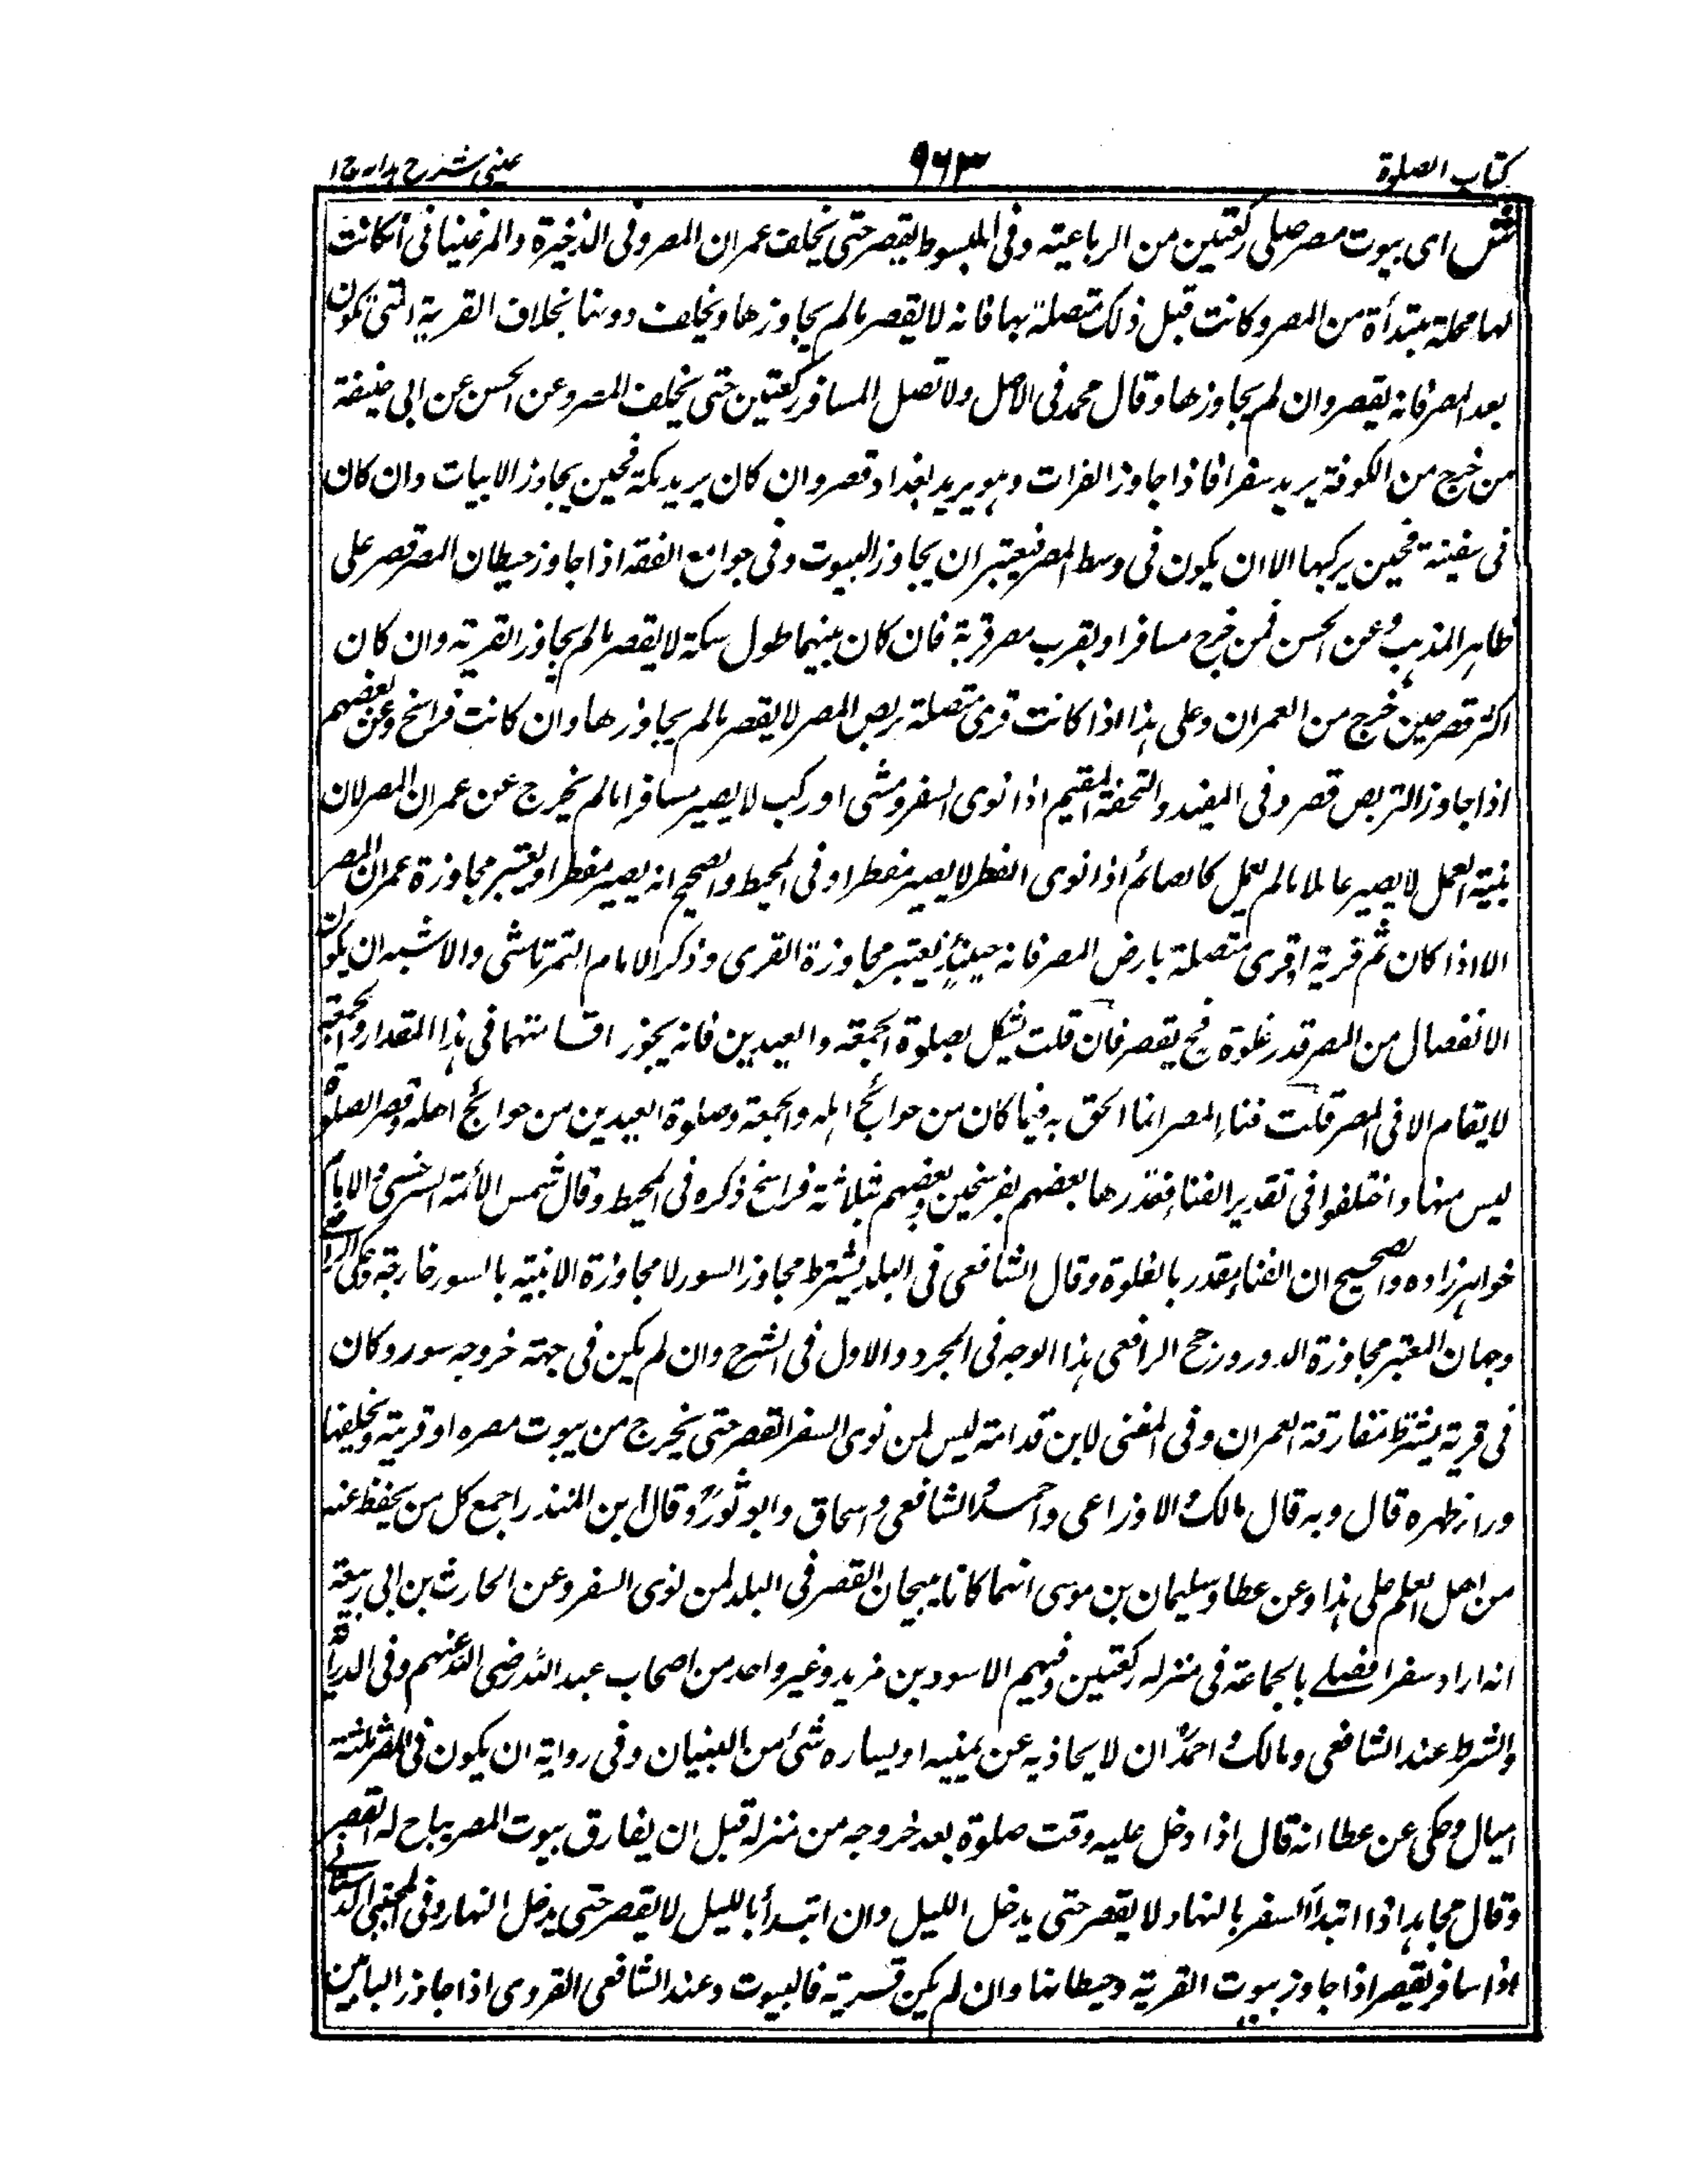 كتاب الصلوة
٩٦٣
عینی شرح هدایه ج ١
ش اى بيوت مصر صلى ركعتين من الرباعية وفى المبسوط يقصر حتى يخلف عمران المصر وفى الذخيرة والمرغينانى انكانت
لها محلة مبتدأة من المصر وكانت قبل ذلك متصلة بها فانه لا يقصر مالم يجاوزها ويخلف دورها بخلاف القرية التى تكون
بعد المصر فانه يقصر وان لم يجاوزها وقال محمد فى الاصل ولا تصل المسافر ركعتين حتى يخلف المصر وعن الحسن عن ابى حنيفة
من خرج من الكوفة يريد سفرا فاذا جاوز الفرات وهو يريد بغداد قصر وان كان يريد مكة فحين يجاوز الابيات وان كان
فى سفينة فحين يركبها الا ان يكون فى وسط المصر فيعتبر ان يجاوز البيوت وفى جوامع الفقه اذا جاوز حيطان المصر قصر على
ظاهر المذهب وعن الحسن فمن خرج مسافرا وبقرب مصر قرية فان كان بينهما طول سكة لا يقصر مالم يجاوز القرية وان كان
اكثر قصر حين خرج من العمران وعلى هذا اذا كانت قرى متصلة بربض المصر لا يقصر مالم يجاوزها وان كانت فراسخ وعن بعضهم
اذا جاوز الربض قصر وفى المفيد والتحفة المقيم اذا نوى السفر ومشى او ركب لا يصير مسافرا مالم يخرج عن عمران المصر لان
بنية العمل لا يصير عاملا مالم يعمل كالصائم اذا نوى الفطر لا يصير مفطرا وفى المحيط والصحيح انه يصير مفطرا ويعتبر مجاوزة عمران المصر
الا اذا كان ثم قرية او قرى متصلة بارض المصر فانه حينئذ يعتبر مجاوزة القرى وذكر الامام التمرتاشى والاشبه ان يكون
الانفصال من المصر قدر غلوة فح يقصر فان قلت يشكل بصلوة الجمعة والعيدين فانه يجوز اقامتهما فى هذا المقدار والجمعة
لا يقام الا فى المصر قلت فناء المصر انما الحق به فيما كان من حوائج اهله والجمعة وصلوة العيدين من حوائج اهله وقصر الصلوة
ليس منها واختلفوا فى تقدير الفناء فقدرها بعضهم بفرسخين وبعضهم بثلاثة فراسخ ذكره فى المحيط وقال شمس الأئمة السرخسى والامام
خواهر زاده والصحيح ان الفناء يقدر بالغلوة وقال الشافعى فى البلد يشترط مجاوز السور لا مجاوزة الابنية بالسور خارجة وحكى الرافعى
وجها ان المعتبر مجاوزة الدور ورجح الرافعى هذا الوجه فى المجرد والاول فى الشرح وان لم يكن فى جهة خروجه سور وكان
فى قرية يشترط مفارقة العمران وفى المغنى لابن قدامة ليس لمن نوى السفر القصر حتى يخرج من بيوت مصره او قريته ويخلفها
وراء ظهره قال وبه قال مالك والاوزاعى واحمد والشافعى واسحاق وابو ثور وقال ابن المنذر اجمع كل من يحفظ عنه
من اهل العلم على هذا وعن عطا وسليمان بن موسى انهما كانا يبيحان القصر فى البلد لمن نوى السفر وعن الحارث بن ابى ربيعة
انه اراد سفرا فصلى بالجماعة فى منزله ركعتين وفيهم الاسود بن مزيد وغير واحد من اصحاب عبد الله رضى الله عنهم وفى الدراية
والشرط عند الشافعى ومالك واحمد ان لا يحاذيه عن يمينه او يساره شئ من البنيان وفى رواية ان يكون فى المصر ثلثة
اميال وحكى عن عطا انه قال اذا دخل عليه وقت صلوة بعد خروجه من منزله قبل ان يفارق بيوت المصر يباح له القصر
وقال مجاهد اذا ابتدأ السفر بالنهار لا يقصر حتى يدخل الليل وان ابتدأ بالليل لا يقصر حتى يدخل النهار وفى المجتبى
اذا سافر يقصر اذا جاوز بيوت القرية وحيطانها وان لم يكن قرية فالبيوت وعند الشافعى القروى اذا جاوز البساتين